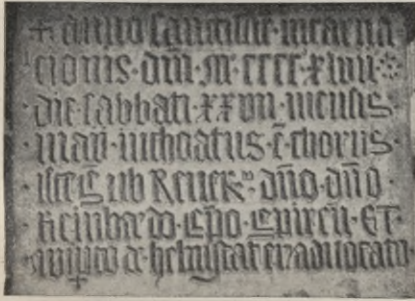 + anno · salutifere · incarna
cionis · dm̄ · m · cccc ·
die · sabbati · xxvii · mensis ·
maii · inchoatus · ē · chorus ·
iste · sub · Reuer · dn̄o · dn̄o ·
Reinhardo · ep̄o · spireñ · ET ·
de · helmstat · advocato